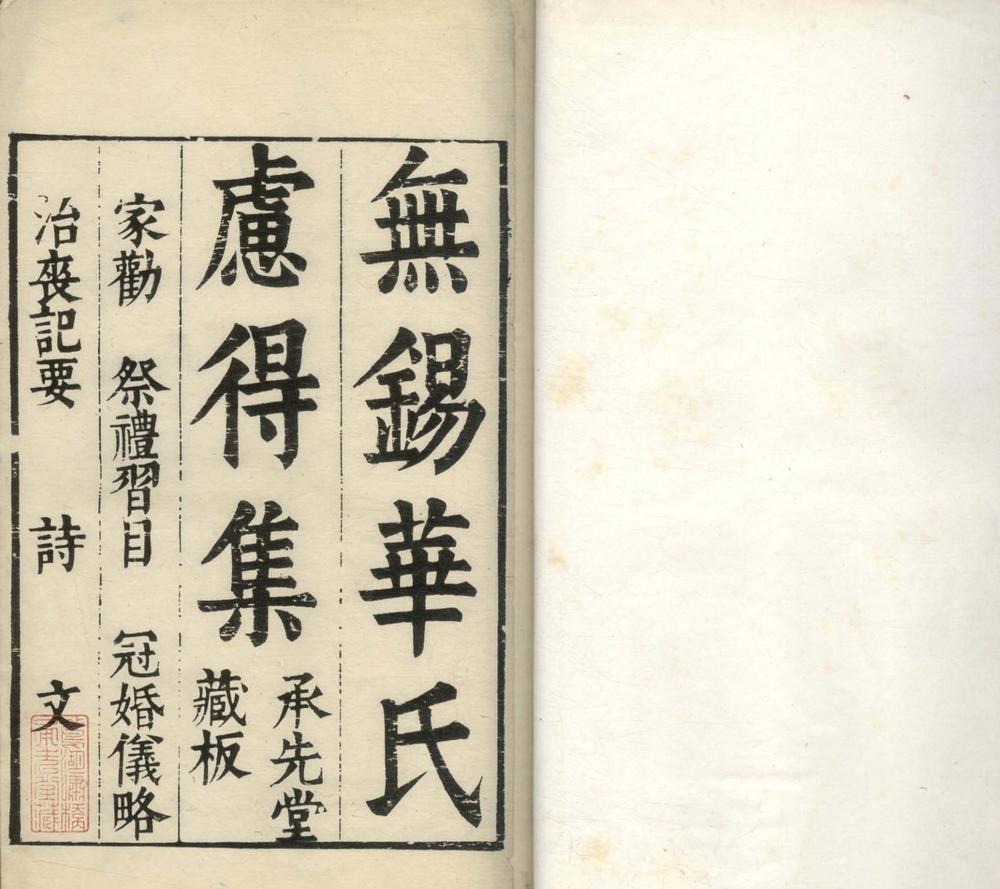 無錫華氏
慮得集
承先堂
藏板
家勸 祭禮習目 冠婚儀略
治喪記要 詩 文